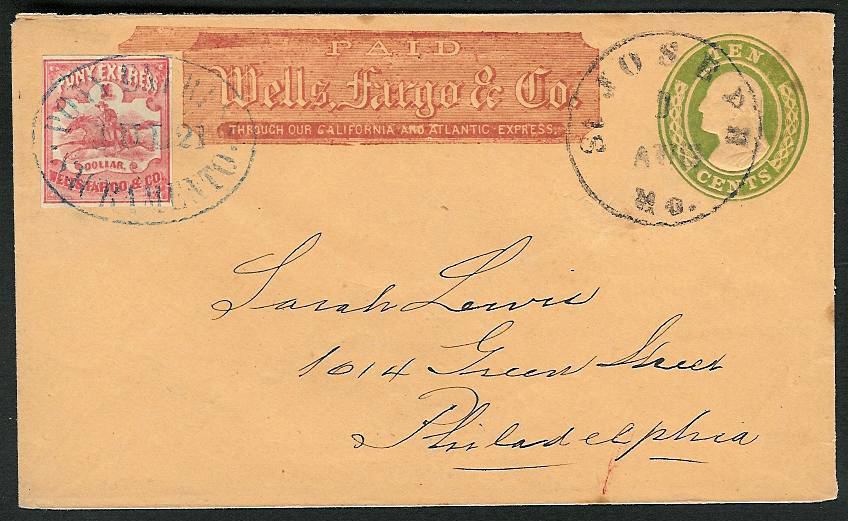 PAID
Wells, Fargo & Co.
THROUGH OUR CALIFORNIA AND ATLANTIC EXPRESS.
PONY EXPRESS
DOLLAR.
WELLS FARGO & CO.
PONY
21
SACRAMENTO.
ST JOSEPH
MO.
TEN
CENTS
Sarah Lewis
1614 Green Street
Philadelphia